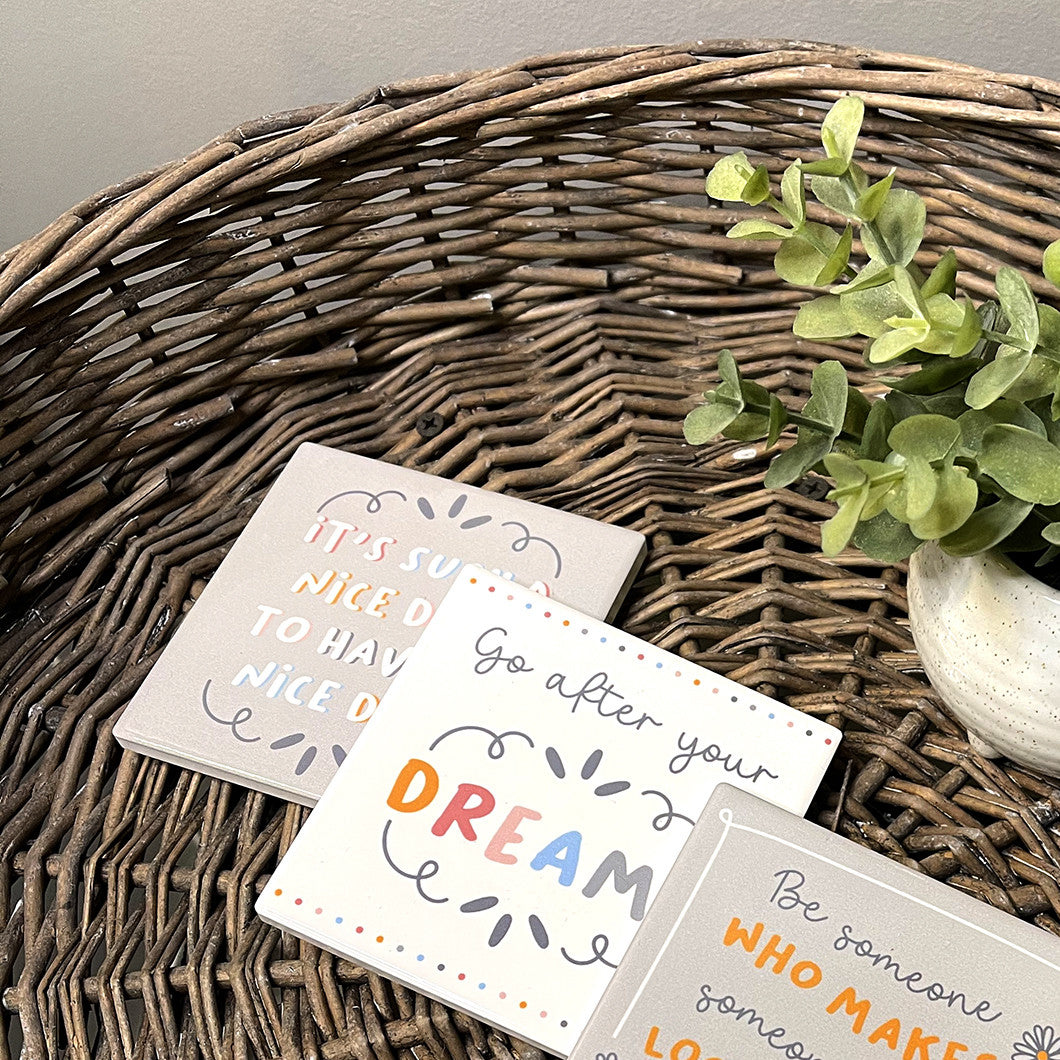 iT'S SUCH A
NiCE D
TO HAV
NiCE D
Go after your
DREAM
Be someone
WHO MAKE
someo
LO